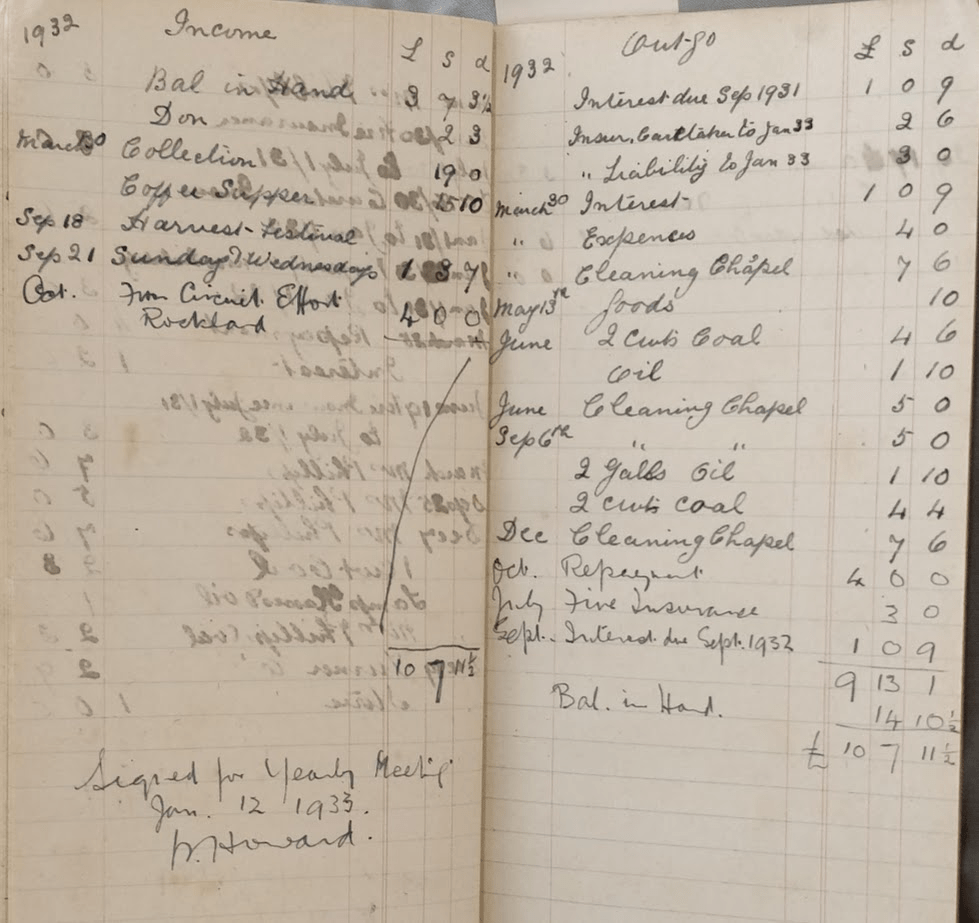 1932 Income
£ s d
Bal in Hand 3 7 3½
Don 2 3
March 30 Collection 19 0
Coffee Supper 15 10
Sep 18 Harvest Festival
Sep 21 Sunday & Wednesdays 1 3 7
Oct. From Circuit Effort
4 0 0
10 7 11½
Signed for Yearly Meeting
Jan. 12 1933.
W. Howard.
1932 Out-go £ s d
Interest due Sep 1931 1 0 9
Insur. Caretaker to Jan 33 2 6
" Liability to Jan 33 3 0
March 30 Interest 1 0 9
" Expences 4 0
" Cleaning Chapel 7 6
May 13th Goods 10
June 2 cwts Coal 4 6
Oil 1 10
June Cleaning Chapel 5 0
Sep 6th " " 5 0
2 Galls Oil 1 10
2 cwts coal 4 4
Dec Cleaning Chapel 7 6
Oct. Repayment 4 0 0
July Fire Insurance 3 0
Sept. Interest due Sept. 1932 1 0 9
9 13 1
Bal. in Hand. 14 10½
£ 10 7 11½